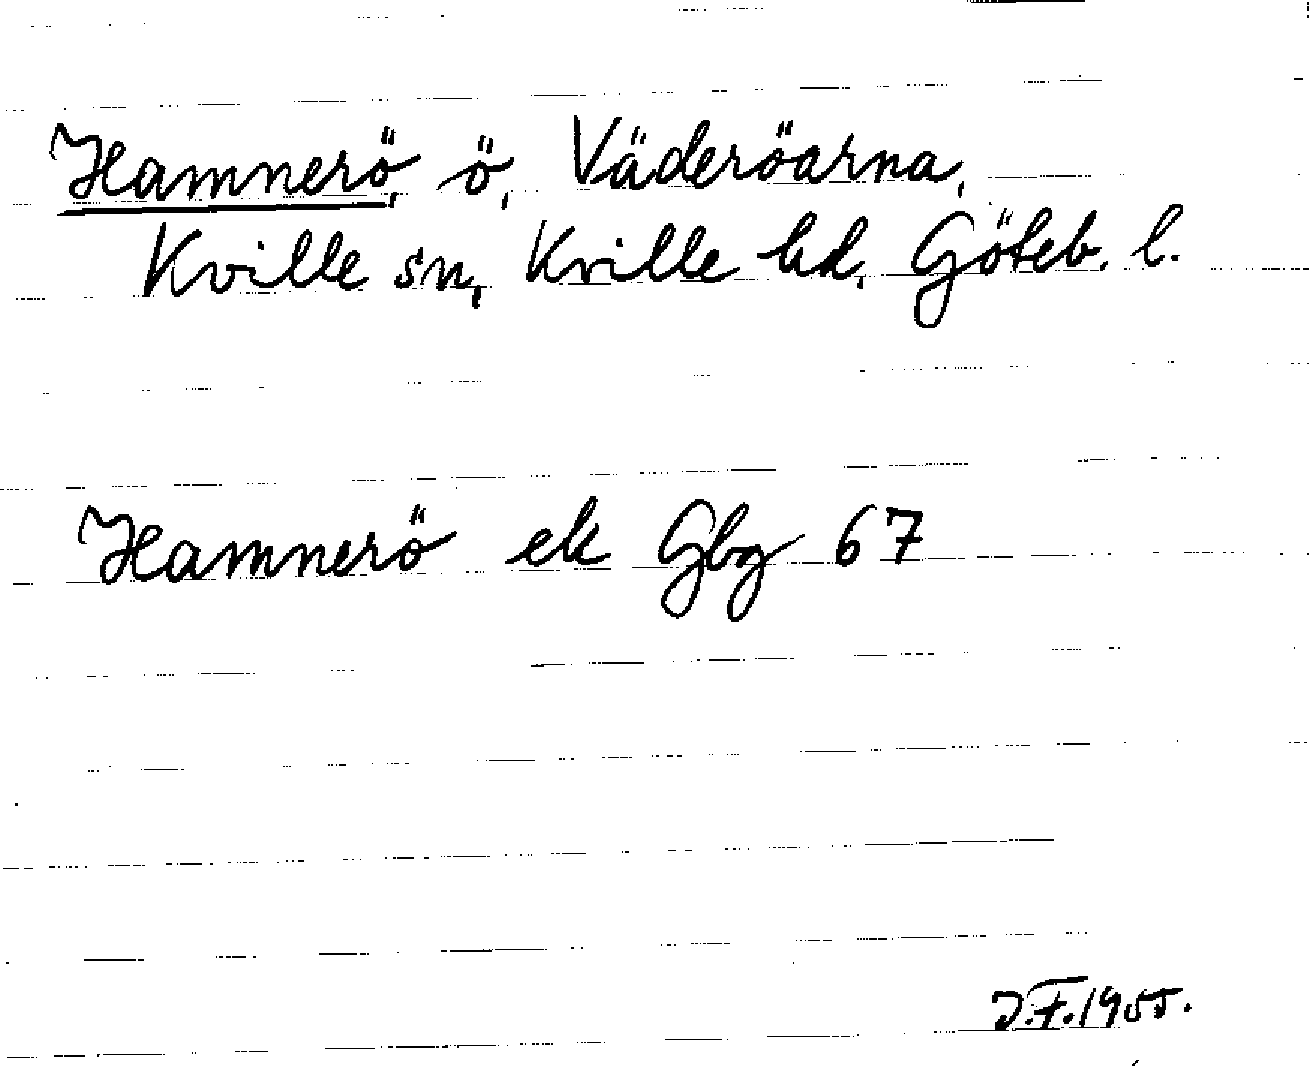 Hamnerö, ö, Väderöarna,
Kville sn, Kville hd, Göteb. l.
Hamnerö ek Gbg 67
J.F. 1955.